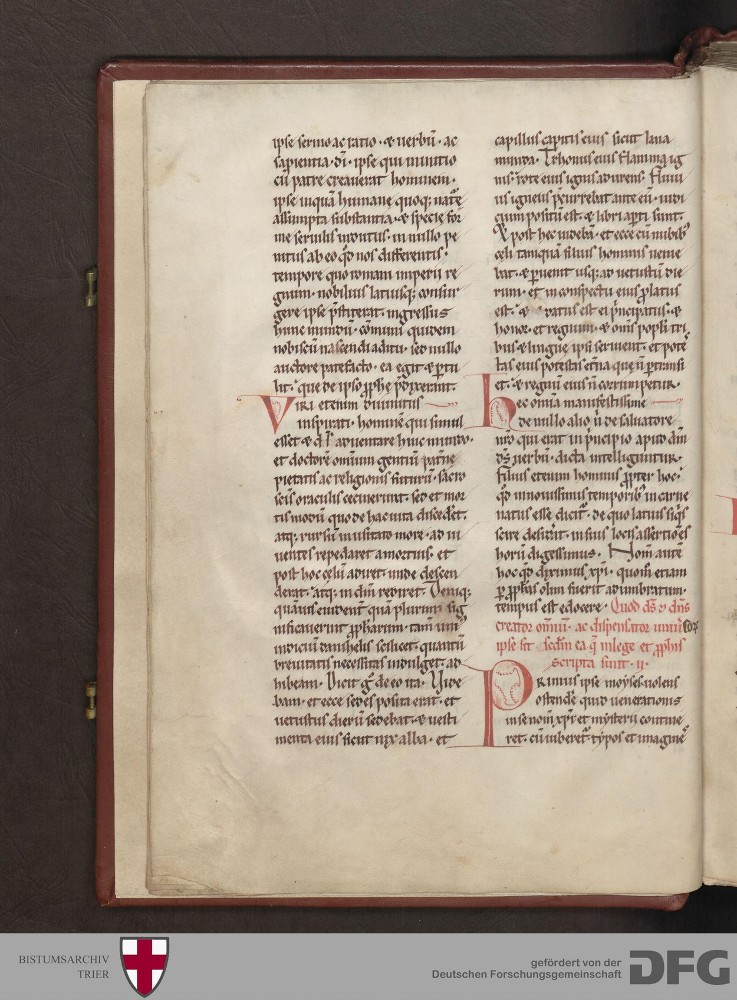 ipse sermo ac ratio · & uerbū · ac
sapientia · dī · ipse qui in initio
cū patre creauerat hominem ·
ipse inquā humane quoq; natę
assumpta substantia · & specie for
me seruilis indutus · in nullo pe
nitus ab eo qđ nos differentis ·
tempore quo romani imperii re
gnum · nobilius latiusq; consur
gere ipse p̄stiterat · ingressus
hunc mundū · cōmuni quidem
nobiscū nascendi aditu · sed nullo
auctore patefacto · ea egit & ptu
lit · que de ipso ꝓphę p̄dixerant ·
Viri etenim diuinitus
inspirati · hominē qui simul
esset & d̄s aduentare huic mundo ·
et doctorē omnium gentiū patrie
pietatis ac religionis futurū · sacro
scīs oraculis cecinerunt · sed et mor
tis modū quo de hac uita discedet ·
atq; rursū inusitato more · ad ui
uentes repedaret a mortuis · et
post hoc celū adiret · unde descen
derat · atq; in dm̄ rediret · Deniq;
quāuis euident quā plurimi sig
nificauerint ꝓpharum · tam̄ uni
indiciū danihelis scilicet · quantū
breuitatis necessitas indulget · ad
hibeam · Dicit g̊ de eo ita · Vide
bam · et ecce sedes posita erat · et
uetustus dierū sedebat · & uesti
menta eius sicut nix alba · et
capillus capitis eius sicut lana
munda · Thronus eius flamma ig
nis · rote eius ignis adurens · fluui
us igneus p̄currebat ante eū · iudi
cium positū est · & libri apti sunt ·
& post hec uidebā · et ecce cū nubib;
celi tanquā filius hominis uenie
bat · & puenit usq; ad uetustū die
rum · et in conspectu eius ꝓlatus
est · & datus est ei p̄ncipatus · &
honor · et regnum · & om̄s popl̄i tri
bus & lingue ipsi seruient · et pote
stas eius potestas etn̄a que n̄ ptransi
et · & regnū eius n̄ corrumpetur ·
hec omīa manifestissime
de nullo alio n̄ de saluatore
nr̄o qui erat in p̄ncipio apud dm̄
d̄s uerbū · dicta intelliguntur ·
filius etenim hominis ꝓpter hoc ·
qđ in nouissimis temporib; in carne
natus esse dicit · de quo latius siq̄s
scire desidit · in suis locis assertiōes
horū digessimus · Nom̄ autē
hoc qđ diximus xp̄i · quom̄ etiam
p ꝓph̄as olim fuerit adumbratum ·
tempus est edocere · Quod d̄s & dn̄s
creator om̄iū · ac dispensator uniūsor
ipse sit secdm̄ ea q̄ in lege et ꝓphis
scripta sunt · ii ·
Primus ipse moyses uolens
ostendē quid uenerationis
in se nom̄ xp̄i et mysterii contine
ret · cū iuberet · typos et imaginē
BISTUMSARCHIV
TRIER
gefördert von der
Deutschen Forschungsgemeinschaft
DFG